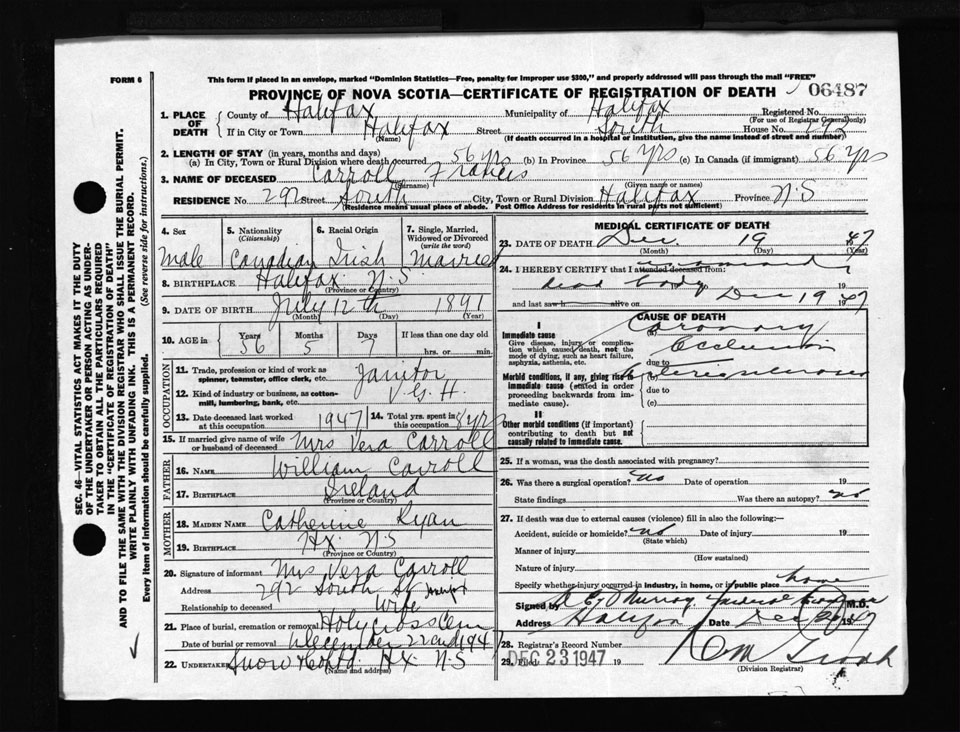 FORM 6
This form if placed in an envelope, marked "Dominion Statistics—Free, penalty for improper use $300," and properly addressed will pass through the mail "FREE"
PROVINCE OF NOVA SCOTIA—CERTIFICATE OF REGISTRATION OF DEATH
06487
1. PLACE OF DEATH
County of Halifax Municipality of Halifax Registered No.
(For use of Registrar Generally only)
If in City or Town Halifax Street South House No.
(Name) (If death occurred in a hospital or institution, give the name instead of street and number)
2. LENGTH OF STAY (in years, months and days)
(a) In City, Town or Rural Division where death occurred 56 yrs (b) In Province 56 yrs (c) In Canada (if immigrant) 56 yrs
3. NAME OF DECEASED Carroll Francis
(Surname) (Given name or names)
RESIDENCE No. 292 Street South City, Town or Rural Division Halifax Province N S
(Residence means usual place of abode. Post Office Address for residents in rural parts not sufficient)
4. Sex
Male
5. Nationality
(Citizenship)
Canadian
6. Racial Origin
Irish
7. Single, Married, Widowed or Divorced
(write the word)
Married
8. BIRTHPLACE Halifax N.S
(Province or Country)
9. DATE OF BIRTH July 12th 1891
(Month) (Day) (Year)
10. AGE in
Years Months Days If less than one day
56 5 7 hrs. or min.
OCCUPATION
11. Trade, profession or kind of work as spinner, teamster, office clerk, etc. Janitor
12. Kind of industry or business, as cotton-mill, lumbering, bank, etc. V.G.H.
13. Date deceased last worked at this occupation 1947
14. Total yrs. spent in this occupation 8 yrs
15. If married give name of wife or husband of deceased Mrs Vera Carroll
FATHER
16. NAME William Carroll
17. BIRTHPLACE Ireland
(Province or Country)
MOTHER
18. MAIDEN NAME Catherine Ryan
19. BIRTHPLACE Hx N.S
(Province or Country)
20. Signature of informant Mrs Vera Carroll
Address 292 South St
Relationship to deceased Wife
21. Place of burial, cremation or removal Holy Cross Cem
Date of burial or removal December 22nd 194
22. UNDERTAKER Snow & Co Ltd. Hx N S
(Name and address)
MEDICAL CERTIFICATE OF DEATH
23. DATE OF DEATH Dec. 19 1947
(Month) (Day) (Year)
24. I HEREBY CERTIFY that I attended deceased from:
dead body 19
and last saw h alive on Dec 19 1947
CAUSE OF DEATH
I
Immediate cause
Give disease, injury or complication which caused death, not the mode of dying, such as heart failure, asphyxia, asthenia, etc.
(a) Coronary Occlusion
due to
Morbid conditions, if any, giving rise to immediate cause (stated in order proceeding backwards from immediate cause).
(b) Arteriosclerosis
due to
(c)
II
Other morbid conditions (if important) contributing to death but not causally related to immediate cause.
25. If a woman, was the death associated with pregnancy?
26. Was there a surgical operation? no Date of operation 19
State findings Was there an autopsy? no
27. If death was due to external causes (violence) fill in also the following:—
Accident, suicide or homicide? no Date of injury 19
(State which)
Manner of injury
(How sustained)
Nature of injury
Specify whether injury occurred in industry, in home, or in public place home
Signed by Murray M.D.
Address Halifax Date Dec 1947
28. Registrar's Record Number
29. Filed DEC 23 1947 19
(Division Registrar)
SEC. 46—VITAL STATISTICS ACT MAKES IT THE DUTY
OF THE UNDERTAKER OR PERSON ACTING AS UNDER-
TAKER TO OBTAIN ALL THE PARTICULARS REQUIRED
IN THE "CERTIFICATE OF REGISTRATION OF DEATH"
AND TO FILE THE SAME WITH THE DIVISION REGISTRAR WHO SHALL ISSUE THE BURIAL PERMIT.
WRITE PLAINLY WITH UNFADING INK. THIS IS A PERMANENT RECORD.
Every item of information should be carefully supplied. (See reverse side for instructions.)